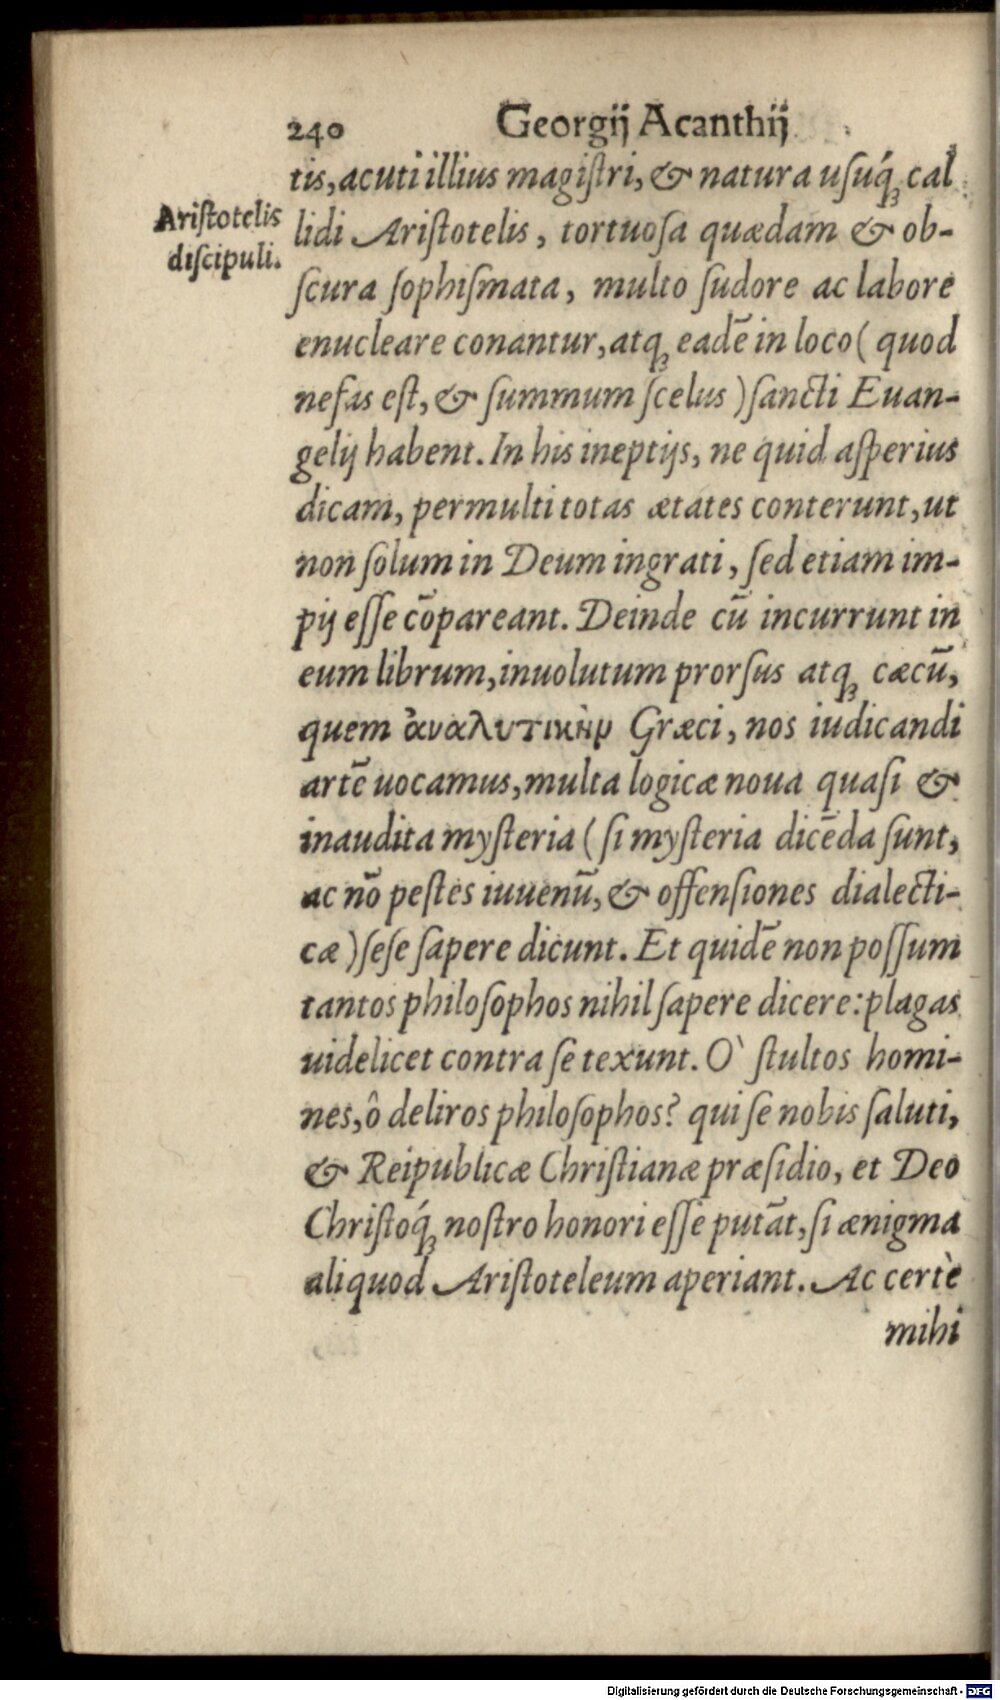 240 Georgij Acanthij
tis, acuti illius magiſtri, & natura uſuq́ꝫ cal
Ariſtotelis
diſcipuli.
lidi Ariſtotelis, tortuoſa quædam & ob-
ſcura ſophiſmata, multo ſudore ac labore
enucleare conantur, atqꝫ eadē in loco (quod
nefas eſt, & ſummum ſcelus) ſancti Euan-
gelij habent. In his ineptijs, ne quid aſperius
dicam, permulti totas ætates conterunt, ut
non ſolum in Deum ingrati, ſed etiam im-
pij eſſe cōpareant. Deinde cū incurrunt in
eum librum, inuolutum prorſus atqꝫ cæcū,
quem ἀναλυτικὴν Græci, nos iudicandi
artē uocamus, multa logicæ noua quaſi &
inaudita myſteria (ſi myſteria dicēda ſunt,
ac nō peſtes iuuenū, & offenſiones dialecti-
cæ) ſeſe ſapere dicunt. Et quidē non poſſum
tantos philoſophos nihil ſapere dicere: plagas
uidelicet contra ſe texunt. O` ſtultos homi-
nes, ô deliros philoſophos? qui ſe nobis ſaluti,
& Reipublicæ Chriſtianæ præſidio, et Deo
Chriſtoq́ꝫ noſtro honori eſſe putāt, ſi ænigma
aliquod Ariſtoteleum aperiant. Ac certè
mihi
Digitalisierung gefördert durch die Deutsche Forschungsgemeinschaft - DFG